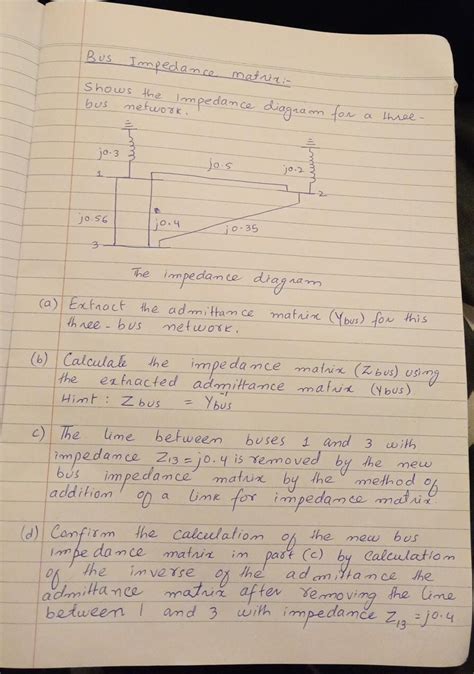 Bus Impedance matrix:-
Shows the impedance diagram for a three-
bus network.
j0.3
j0.5
j0.2
1
2
j0.56
j0.4
j0.35
3
The impedance diagram
(a) Extract the admittance matrix (Ybus) for this
three-bus network.
(b) Calculate the impedance matrix (Zbus) using
the extracted admittance matrix (Ybus).
Himt : Zbus = Ybus⁻¹
c) The line between buses 1 and 3 with
impedance Z13 = j0.4 is removed by the new
bus impedance matrix by the method of
addition of a link for impedance matrix.
(d) Confirm the calculation of the new bus
impedance matrix in part (c) by calculation
of the inverse of the admittance the
admittance matrix after removing the line
between 1 and 3 with impedance Z13 = j0.4